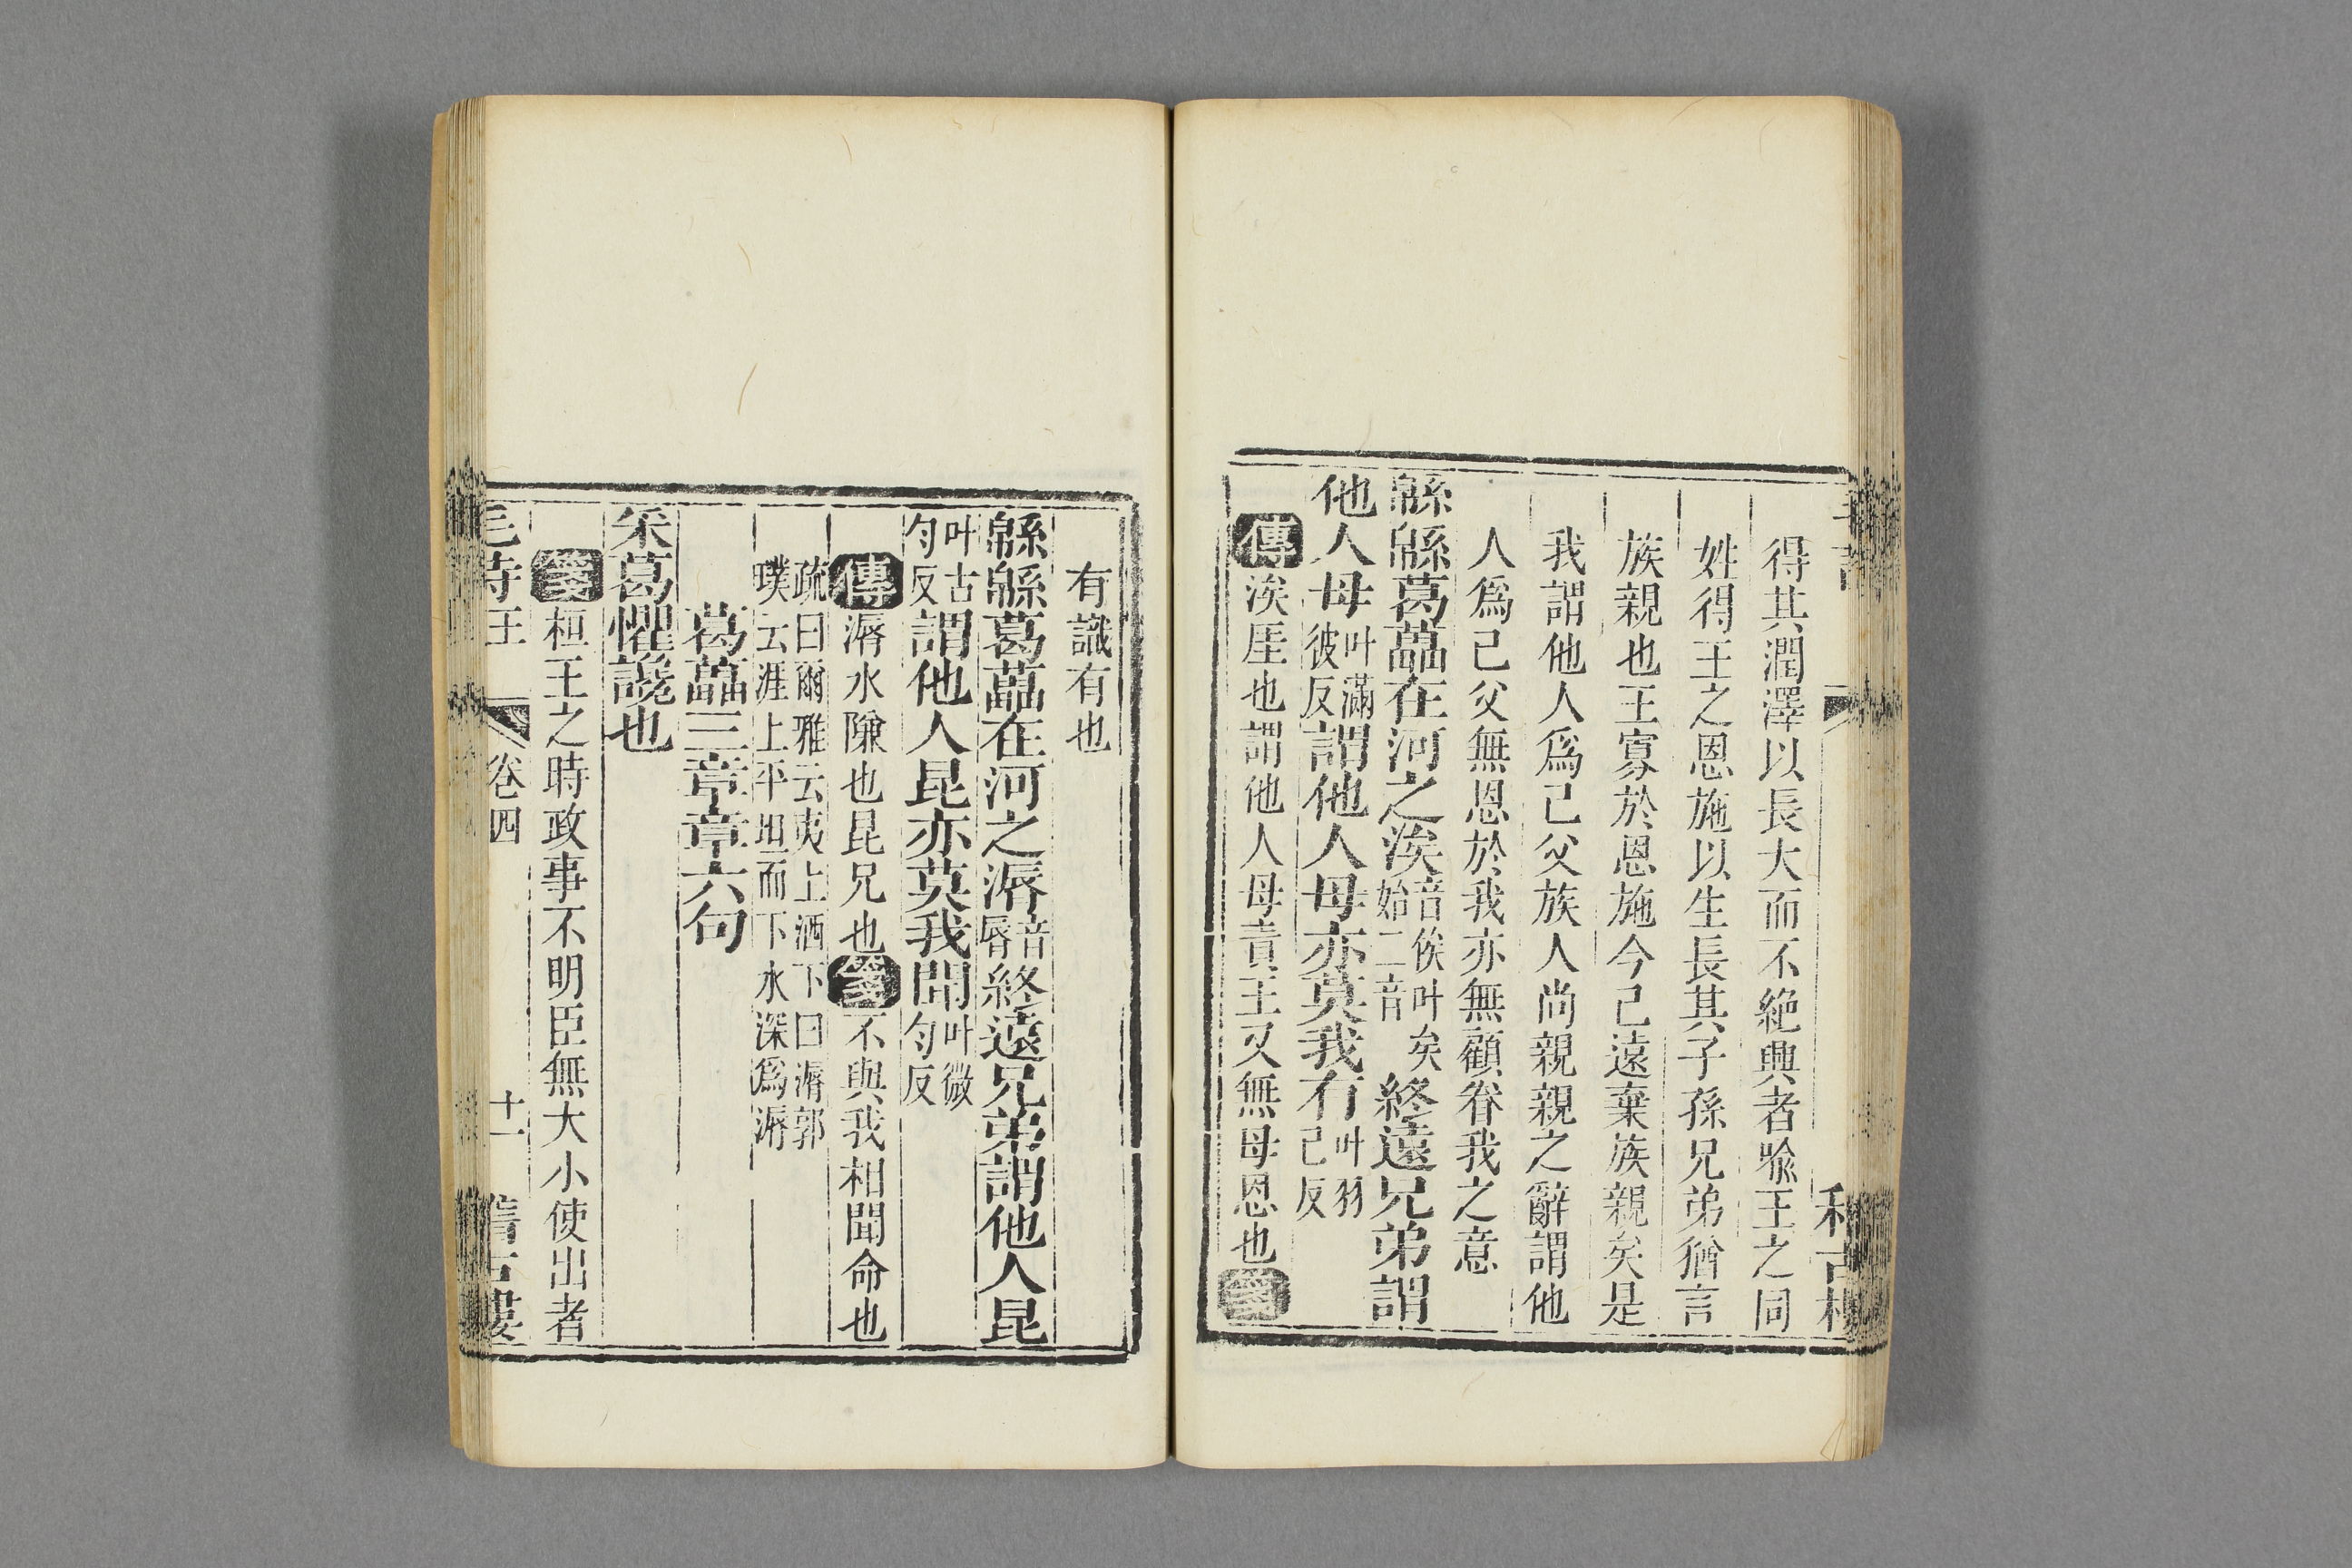 得其潤澤以長大而不絶興者喻王之同
姓得王之恩施以生長其子孫兄弟猶言
族親也王寡於恩施今已遠棄族親矣是
我謂他人爲己父族人尚親親之辭謂他
人爲己父無恩於我亦無顧眷我之意
緜緜葛藟在河之涘音俟叶矣始二音終遠兄弟謂
他人母叶滿彼反謂他人母亦莫我有叶羽己反
傳涘厓也謂他人母責王又無母恩也箋
有識有也
緜緜葛藟在河之漘音脣終遠兄弟謂他人昆
叶古勻反謂他人昆亦莫我聞叶微勻反
傳漘水隒也昆兄也箋不與我相聞命也
疏曰爾雅云夷上洒下曰漘郭
璞云涯上平坦而下水深爲漘
葛藟三章章六句
采葛懼讒也
箋桓王之時政事不明臣無大小使出者
毛詩王 卷四 十一